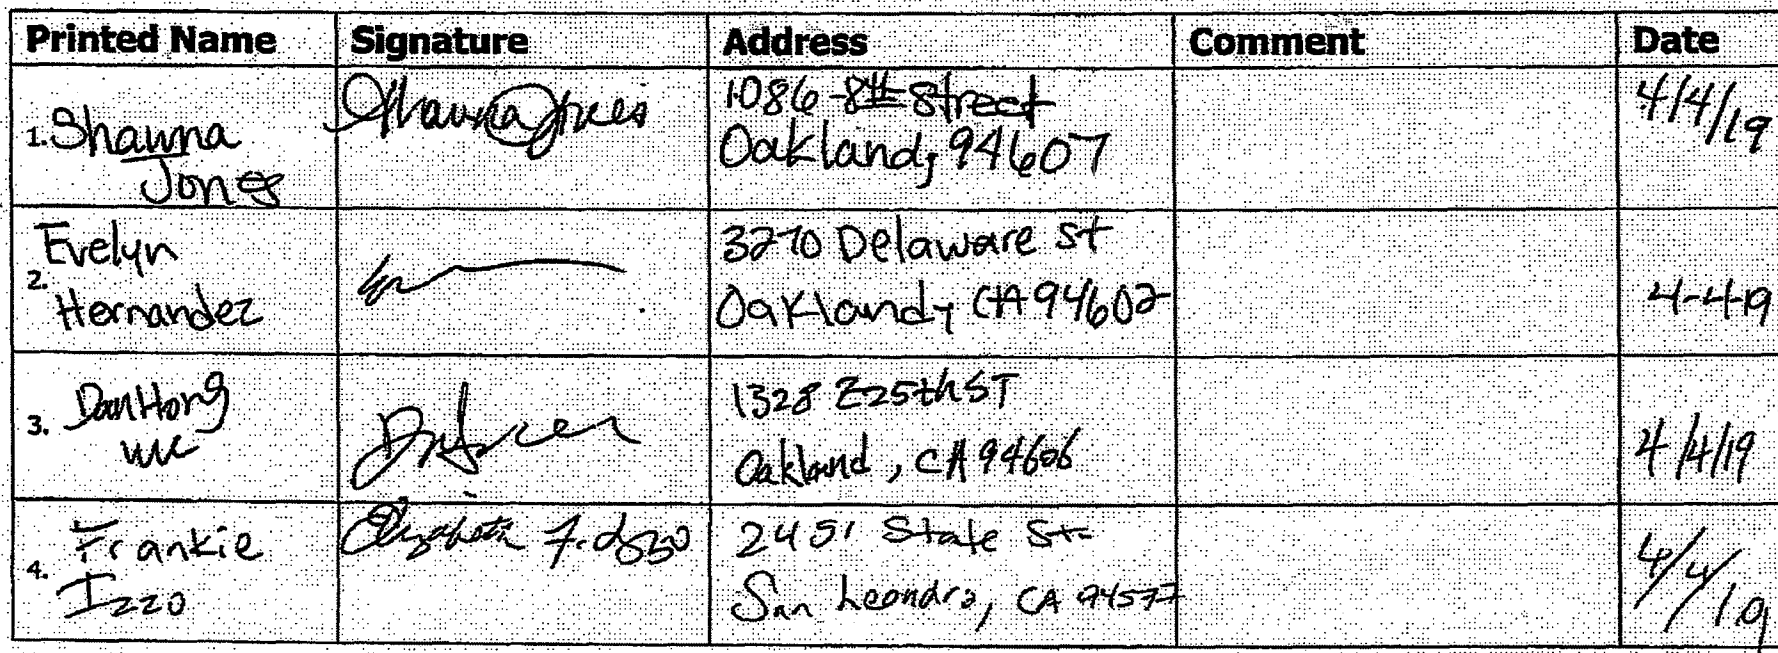 Printed Name Signature Address Comment Date
1. Shawna Jones Shawna Jones 1086 8th Street Oakland, 94607 4/4/19
2. Evelyn Hernandez 3270 Delaware St Oakland, CA 94602 4-4-19
3. Dan Hong 1328 E25th ST Oakland, CA 94606 4/4/19
4. Frankie Izzo Elizabeth F. Izzo 2451 State St. San Leandro, CA 94577 4/4/19